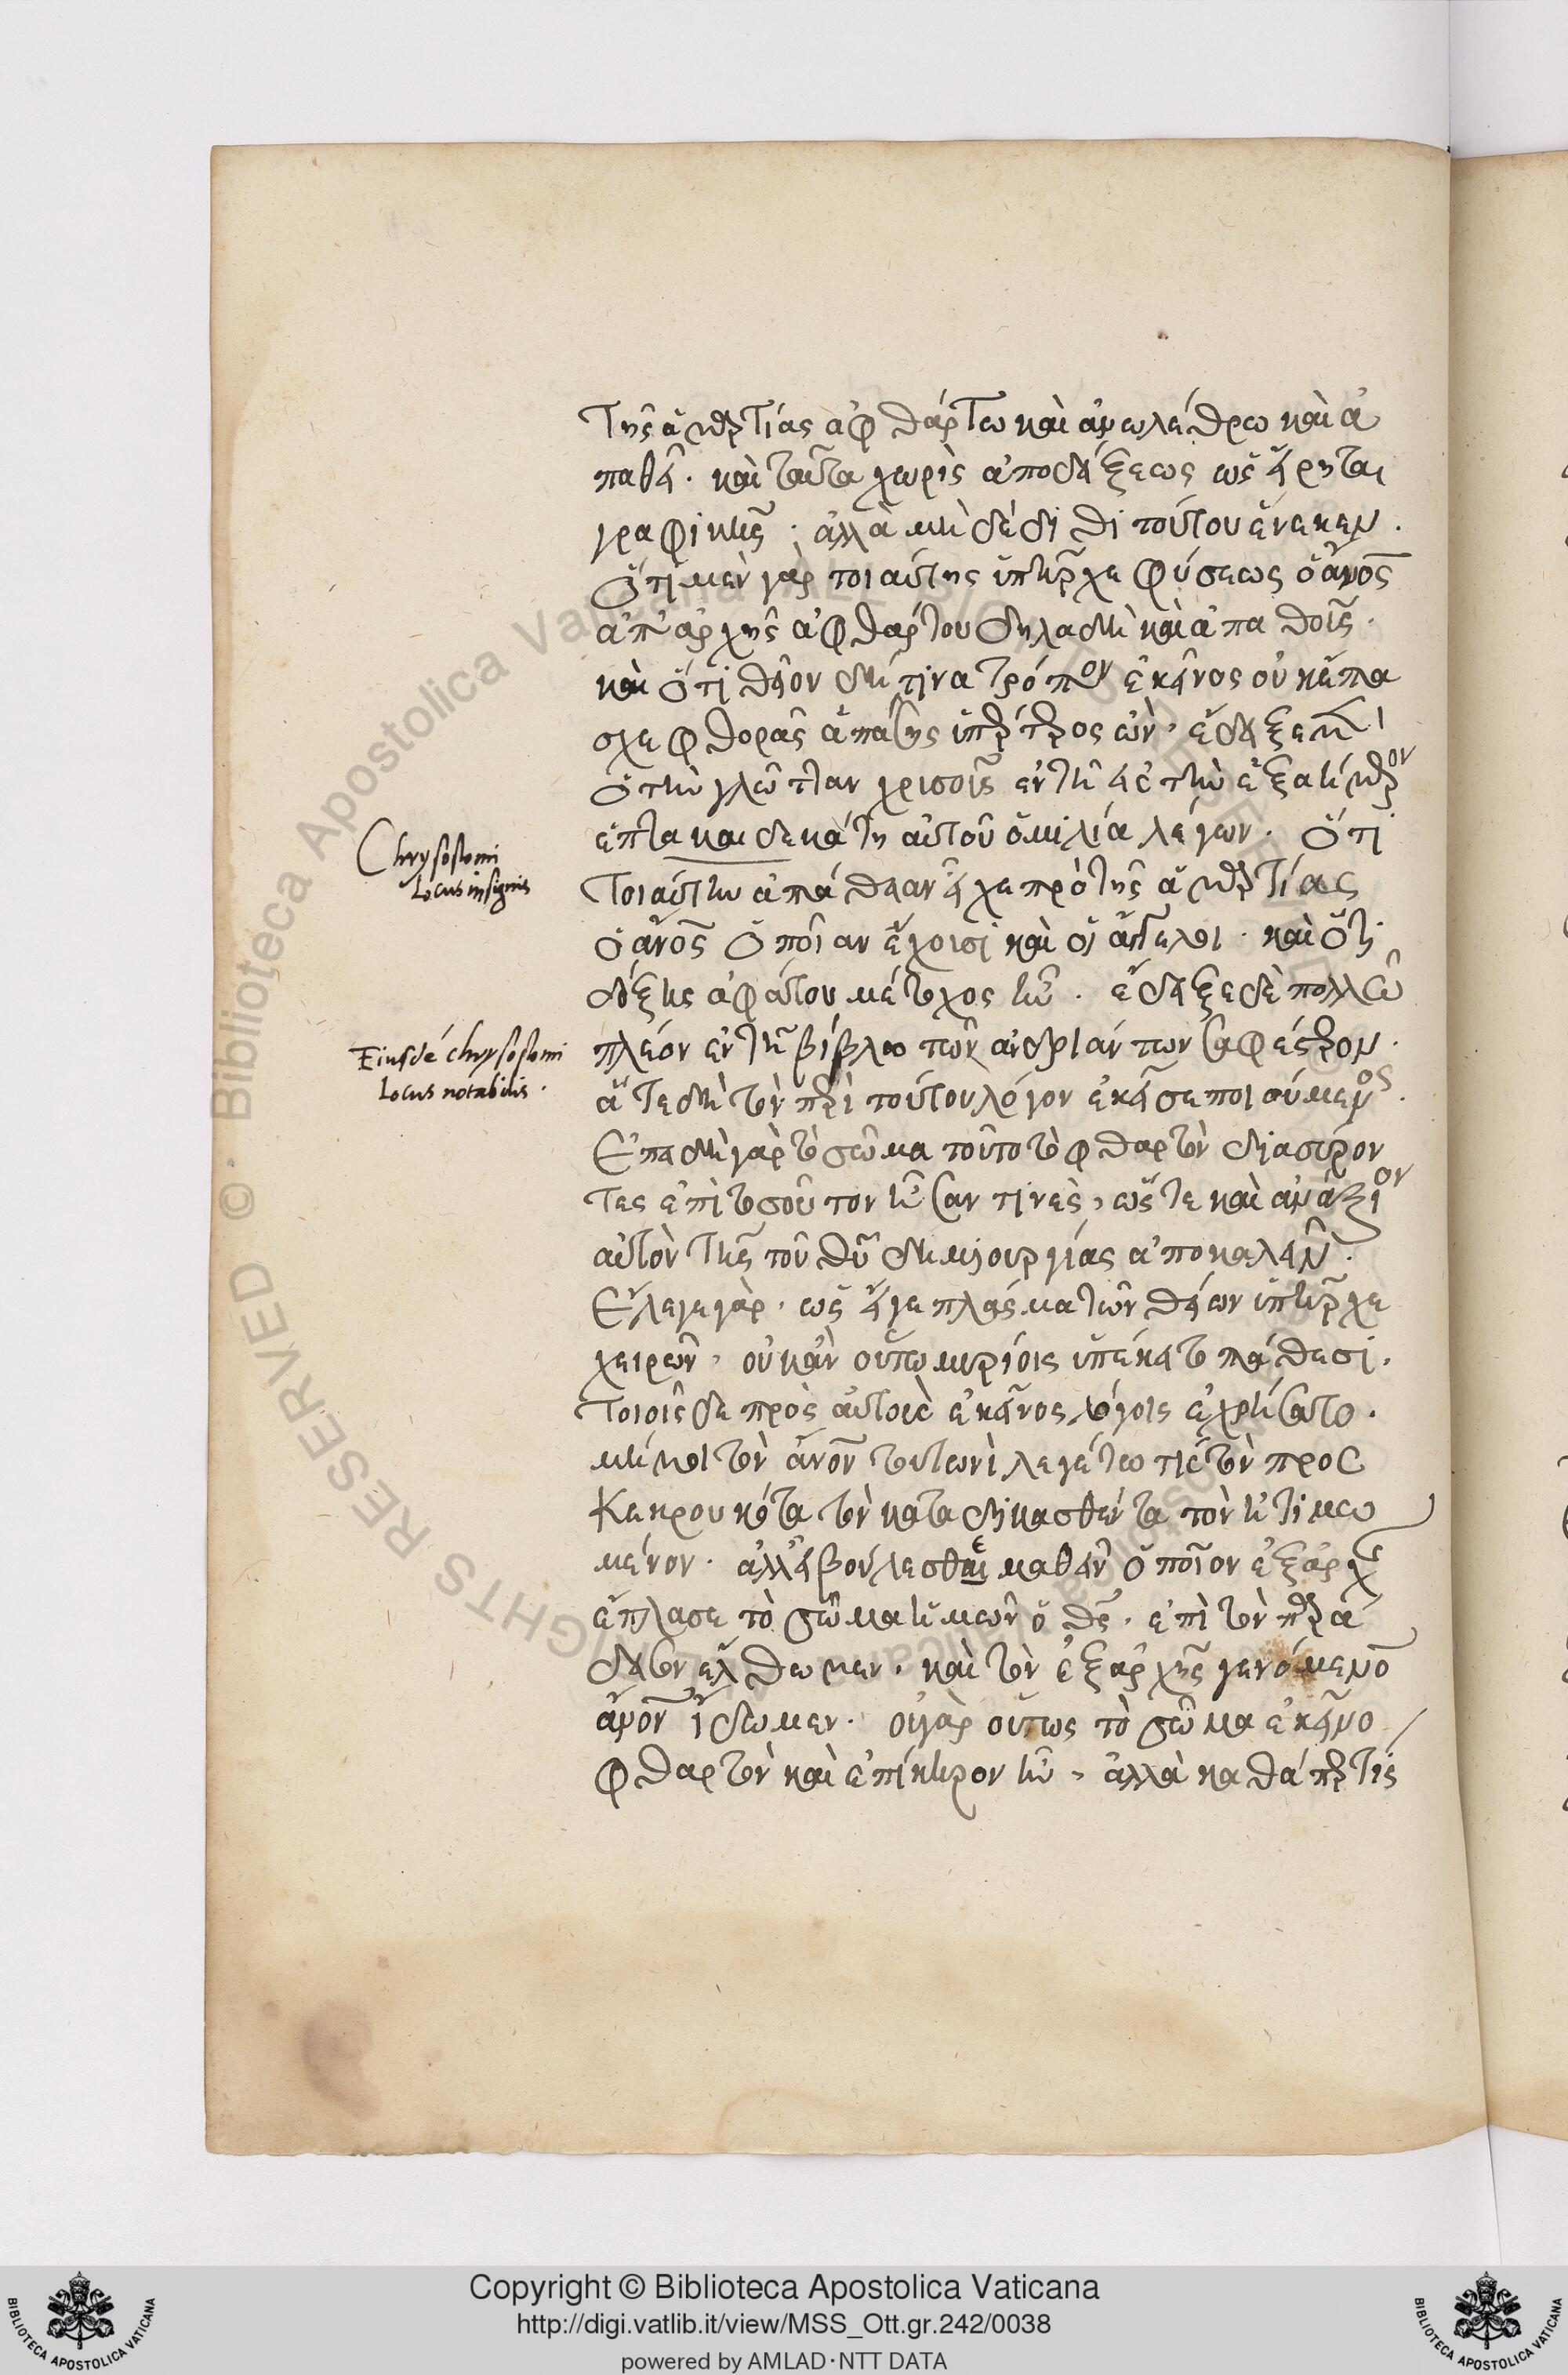 τῆς ἁμαρτίας ἀφθάρτω καὶ ἀνωλέθρω καὶ ἀ
παθεῖ. καὶ ταῦτα χωρὶς ἀποδείξεως ὡς εἴρηται
γραφικῆς. ἀλλὰ μὴ δέδιθι τούτου ἕνεκεν.
Ὅτι μὲν γὰρ τοιαύτης ὑπῆρχε φύσεως ὁ ἄνος
ἀπ' ἀρχῆς ἀφθάρτου δηλαδὴ καὶ ἀπαθοῦς.
καὶ ὅτι θεῖον δή τινα τρόπον ἐκεῖνος οὐκ ἔπα
σχε φθορᾶς ἁπάσης ὑπέρτερος ὢν, ἔδειξεν
ὁ τὴν γλῶτταν χρυσοῦς ἐν τῇ εἰς τὴν ἑξαήμερον
ἑπτακαιδεκάτη αὐτοῦ ὁμιλία λέγων. Ὅτι
τοιαύτην ἀπάθειαν εἶχε πρὸ τῆς ἁμαρτίας
ὁ ἄνος ὁποίαν ἔχουσι καὶ οἱ ἄγγελοι. καὶ ὅτι
δόξης ἀφάτου μέτοχος ἦν. ἔδειξε δὲ πολλῶ
πλέον ἐν τῇ βίβλω τῶν ἀνδριάντων σαφέστερον.
ἅτε δὴ τὸν περὶ τούτου λόγον ἐκεῖσε ποιούμενος.
Ἐπειδὴ γὰρ τὸ σῶμα τοῦτο τὸ φθαρτὸν διασύρον
τες ἐπὶ τοσοῦτον ἦσαν τινὲς, ὥστε καὶ ἀνάξιον
αὐτὸν τῆς τοῦ θυ δημιουργίας ἀποκαλεῖν.
Ἔλεγε γὰρ. ὡς εἴγε πλάσμα τῶν θείων ὑπῆρχε
χειρῶν, οὐκ ἂν οὕτω μυρίοις ὑπέκειτο πάθεσι.
τοιοῖσδε πρὸς αὐτοὺς ἐκεῖνος λόγοις ἐχρήσατο.
μή μοι τὸν ἄνον τουτωνὶ λεγέτω τις τὸν προς
κεκρουκότα τὸν καταδικασθέντα τὸν ἠτιμω
μένον. ἀλλ' εἰ βούλεσθαι μαθεῖν ὁποῖον ἐξαρχῆς
ἔπλασε τὸ σῶμα ἡμῶν ὁ θς. ἐπὶ τὸν παρά
δεισον ἔλθωμεν. καὶ τὸν ἐξαρχῆς γενόμενο
ἄνον ἴδωμεν. οὐ γὰρ οὕτως τὸ σῶμα ἐκεῖνο
φθαρτὸν καὶ ἐπίκηρον ἦν, ἀλλὰ καθάπερ τις
Chrysostomi
Locus insignis
Eiusdē chrysostomi
Locus notabilis.
Copyright © Biblioteca Apostolica Vaticana
http://digi.vatlib.it/view/MSS_Ott.gr.242/0038
powered by AMLAD·NTT DATA
BIBLIOTECA APOSTOLICA VATICANA
BIBLIOTECA APOSTOLICA VATICANA